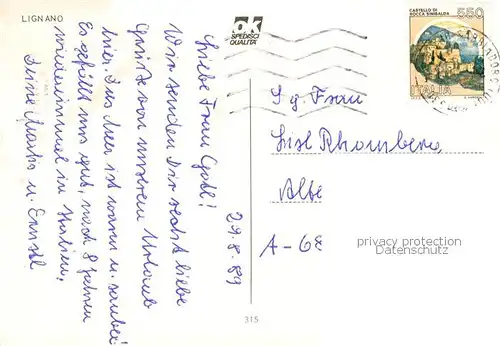 LIGNANO
OK
SPEDISCI
QUALITÀ
CASTELLO DI
ROCCA SINIBALDA
550
ITALIA
Liebe Frau Gotl!
Wir senden Dir recht liebe
Grüße von unserem Urlaub
hier. Das Meer ist warm u. sauber.
Es gefällt uns gut, nach 8 Jahren
wiedereinmal in Italien,
Deine Martha u.
29.8.89
Sg. Frau
Lisl Rhomberg
A-68
privacy protection
AnsichtskartenVersand.com
315